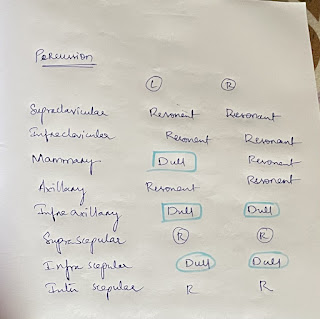 Percussion
L R
Supraclavicular Resonent Resonant
Infraclavicular Resonent Resonant
Mammary Dull Resonent
Axillary Resonent Resonant
Infra axillary Dull Dull
Suprascapular R R
Infra scapular Dull Dull
Inter scapular R R